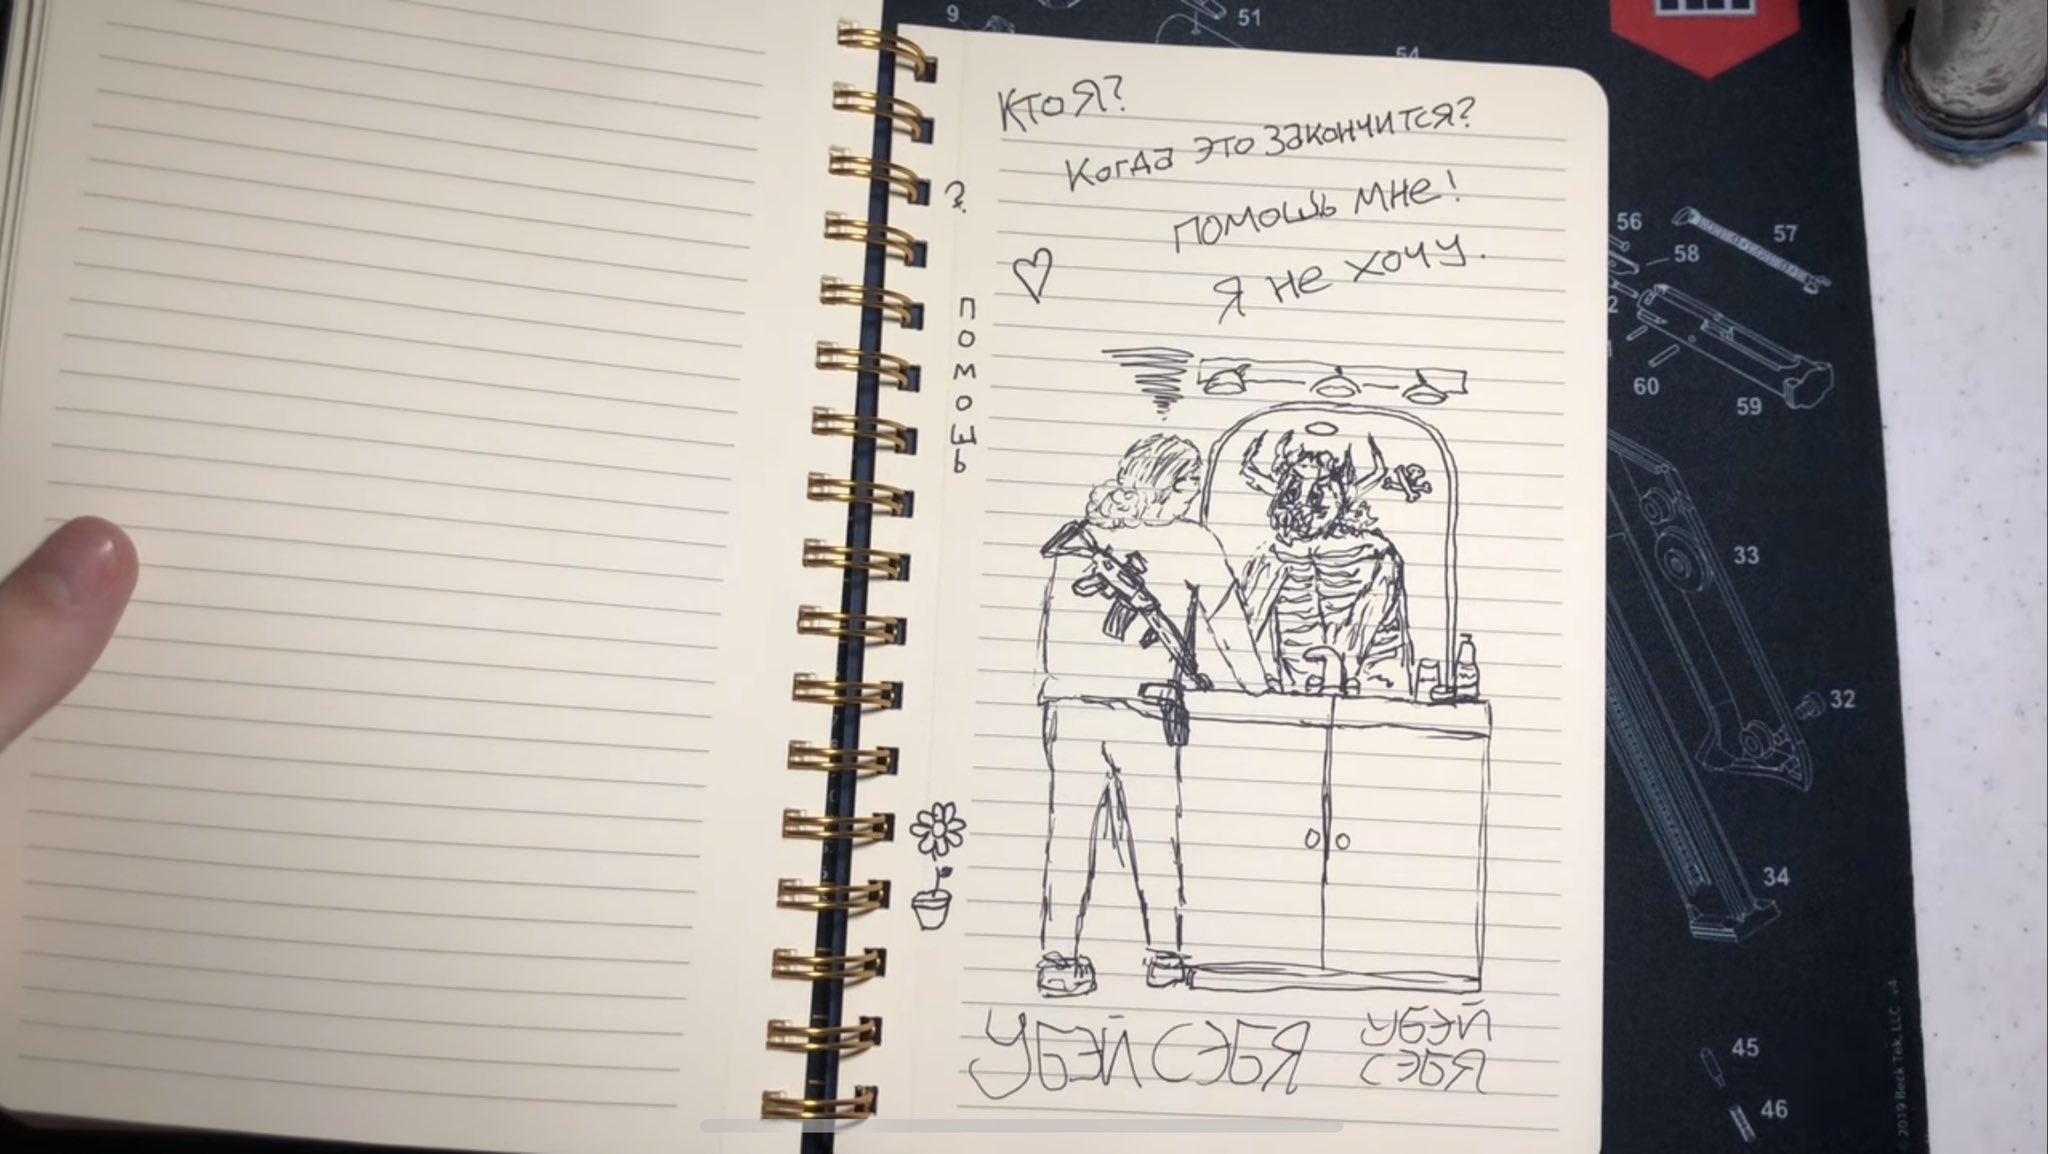 Кто Я?
Когда это закончится?
помошь мне!
Я не хочу.
?
помошь
УБЭЙ СЭБЯ
УБЭЙ
СЭБЯ
9
51
54
56
57
58
60
59
33
32
34
45
46
© 2019 Beck Tek, LLC v4